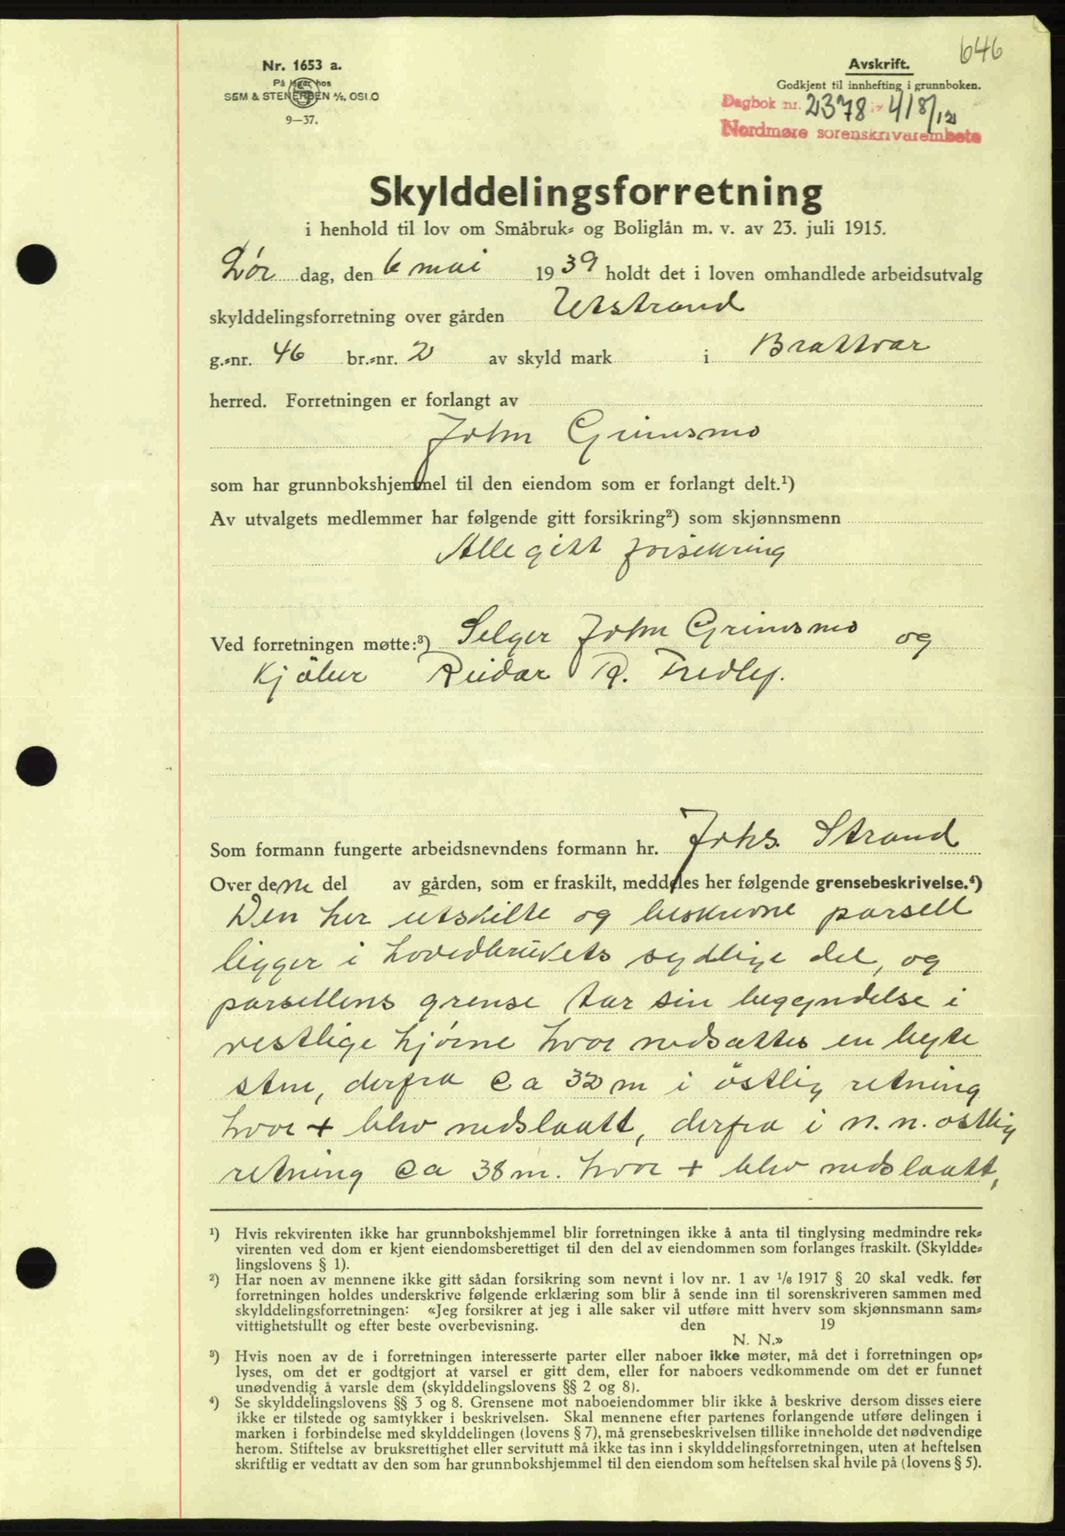 646
Nr. 1653 a.
På lager hos
SEM & STENERSEN A/S, OSLO
9—37.
Avskrift.
Godkjent til innhefting i grunnboken.
Dagbok nr. 2378 - 4/8/12
Nordmøre sorenskriverembete
Skylddelingsforretning
i henhold til lov om Småbruk- og Boliglån m. v. av 23. juli 1915.
Lør dag, den 6 mai 1939 holdt det i loven omhandlede arbeidsutvalg
skylddelingsforretning over gården Utstrand
g.-nr. 46 br.-nr. 2 av skyld mark i Brattvær
herred. Forretningen er forlangt av
John Grimsmo
som har grunnbokshjemmel til den eiendom som er forlangt delt.¹)
Av utvalgets medlemmer har følgende gitt forsikring²) som skjønnsmenn
Alle gitt forsikring
Ved forretningen møtte:³) Selger John Grimsmo og
Kjöber Reidar R. Fredly.
Som formann fungerte arbeidsnevndens formann hr. Johs. Strand
Over denne del av gården, som er fraskilt, meddeles her følgende grensebeskrivelse.⁴)
Den her utskilte og beskrevne parsell
ligger i hovedbrukets sydlige del, og
parsellens grense tar sin begyndelse i
vestlige hjørne hvor nedsættes en byte
sten, derfra ca 32 m i östlig retning
hvor + blev nedslaatt, derfra i n. n. østlig
retning ca 38 m. hvor + blev nedslaatt,
¹) Hvis rekvirenten ikke har grunnbokshjemmel blir forretningen ikke å anta til tinglysing medmindre rek-
virenten ved dom er kjent eiendomsberettiget til den del av eiendommen som forlanges fraskilt. (Skyldde-
lingslovens § 1).
²) Har noen av mennene ikke gitt sådan forsikring som nevnt i lov nr. 1 av ¹/₆ 1917 § 20 skal vedk. før
forretningen holdes underskrive følgende erklæring som blir å sende inn til sorenskriveren sammen med
skylddelingsforretningen: «Jeg forsikrer at jeg i alle saker vil utføre mitt hverv som skjønnsmann sam-
vittighetsfullt og efter beste overbevisning. den 19
N. N.»
³) Hvis noen av de i forretningen interesserte parter eller naboer ikke møter, må det i forretningen op-
lyses, om det er godtgjort at varsel er gitt dem, eller for naboers vedkommende om det er funnet
unødvendig å varsle dem (skylddelingslovens §§ 2 og 8).
⁴) Se skylddelingslovens §§ 3 og 8. Grensene mot naboeiendommer blir ikke å beskrive dersom disses eiere
ikke er tilstede og samtykker i beskrivelsen. Skal mennene efter partenes forlangende utføre delingen i
marken i forbindelse med skylddelingen (lovens § 7), må grensebeskrivelsen tillike inneholde det nødvendige
herom. Stiftelse av bruksrettighet eller servitutt må ikke tas inn i skylddelingsforretningen, uten at heftelsen
skriftlig er vedtatt av den som har grunnbokshjemmel til den eiendom som heftelsen skal hvile på (lovens § 5).